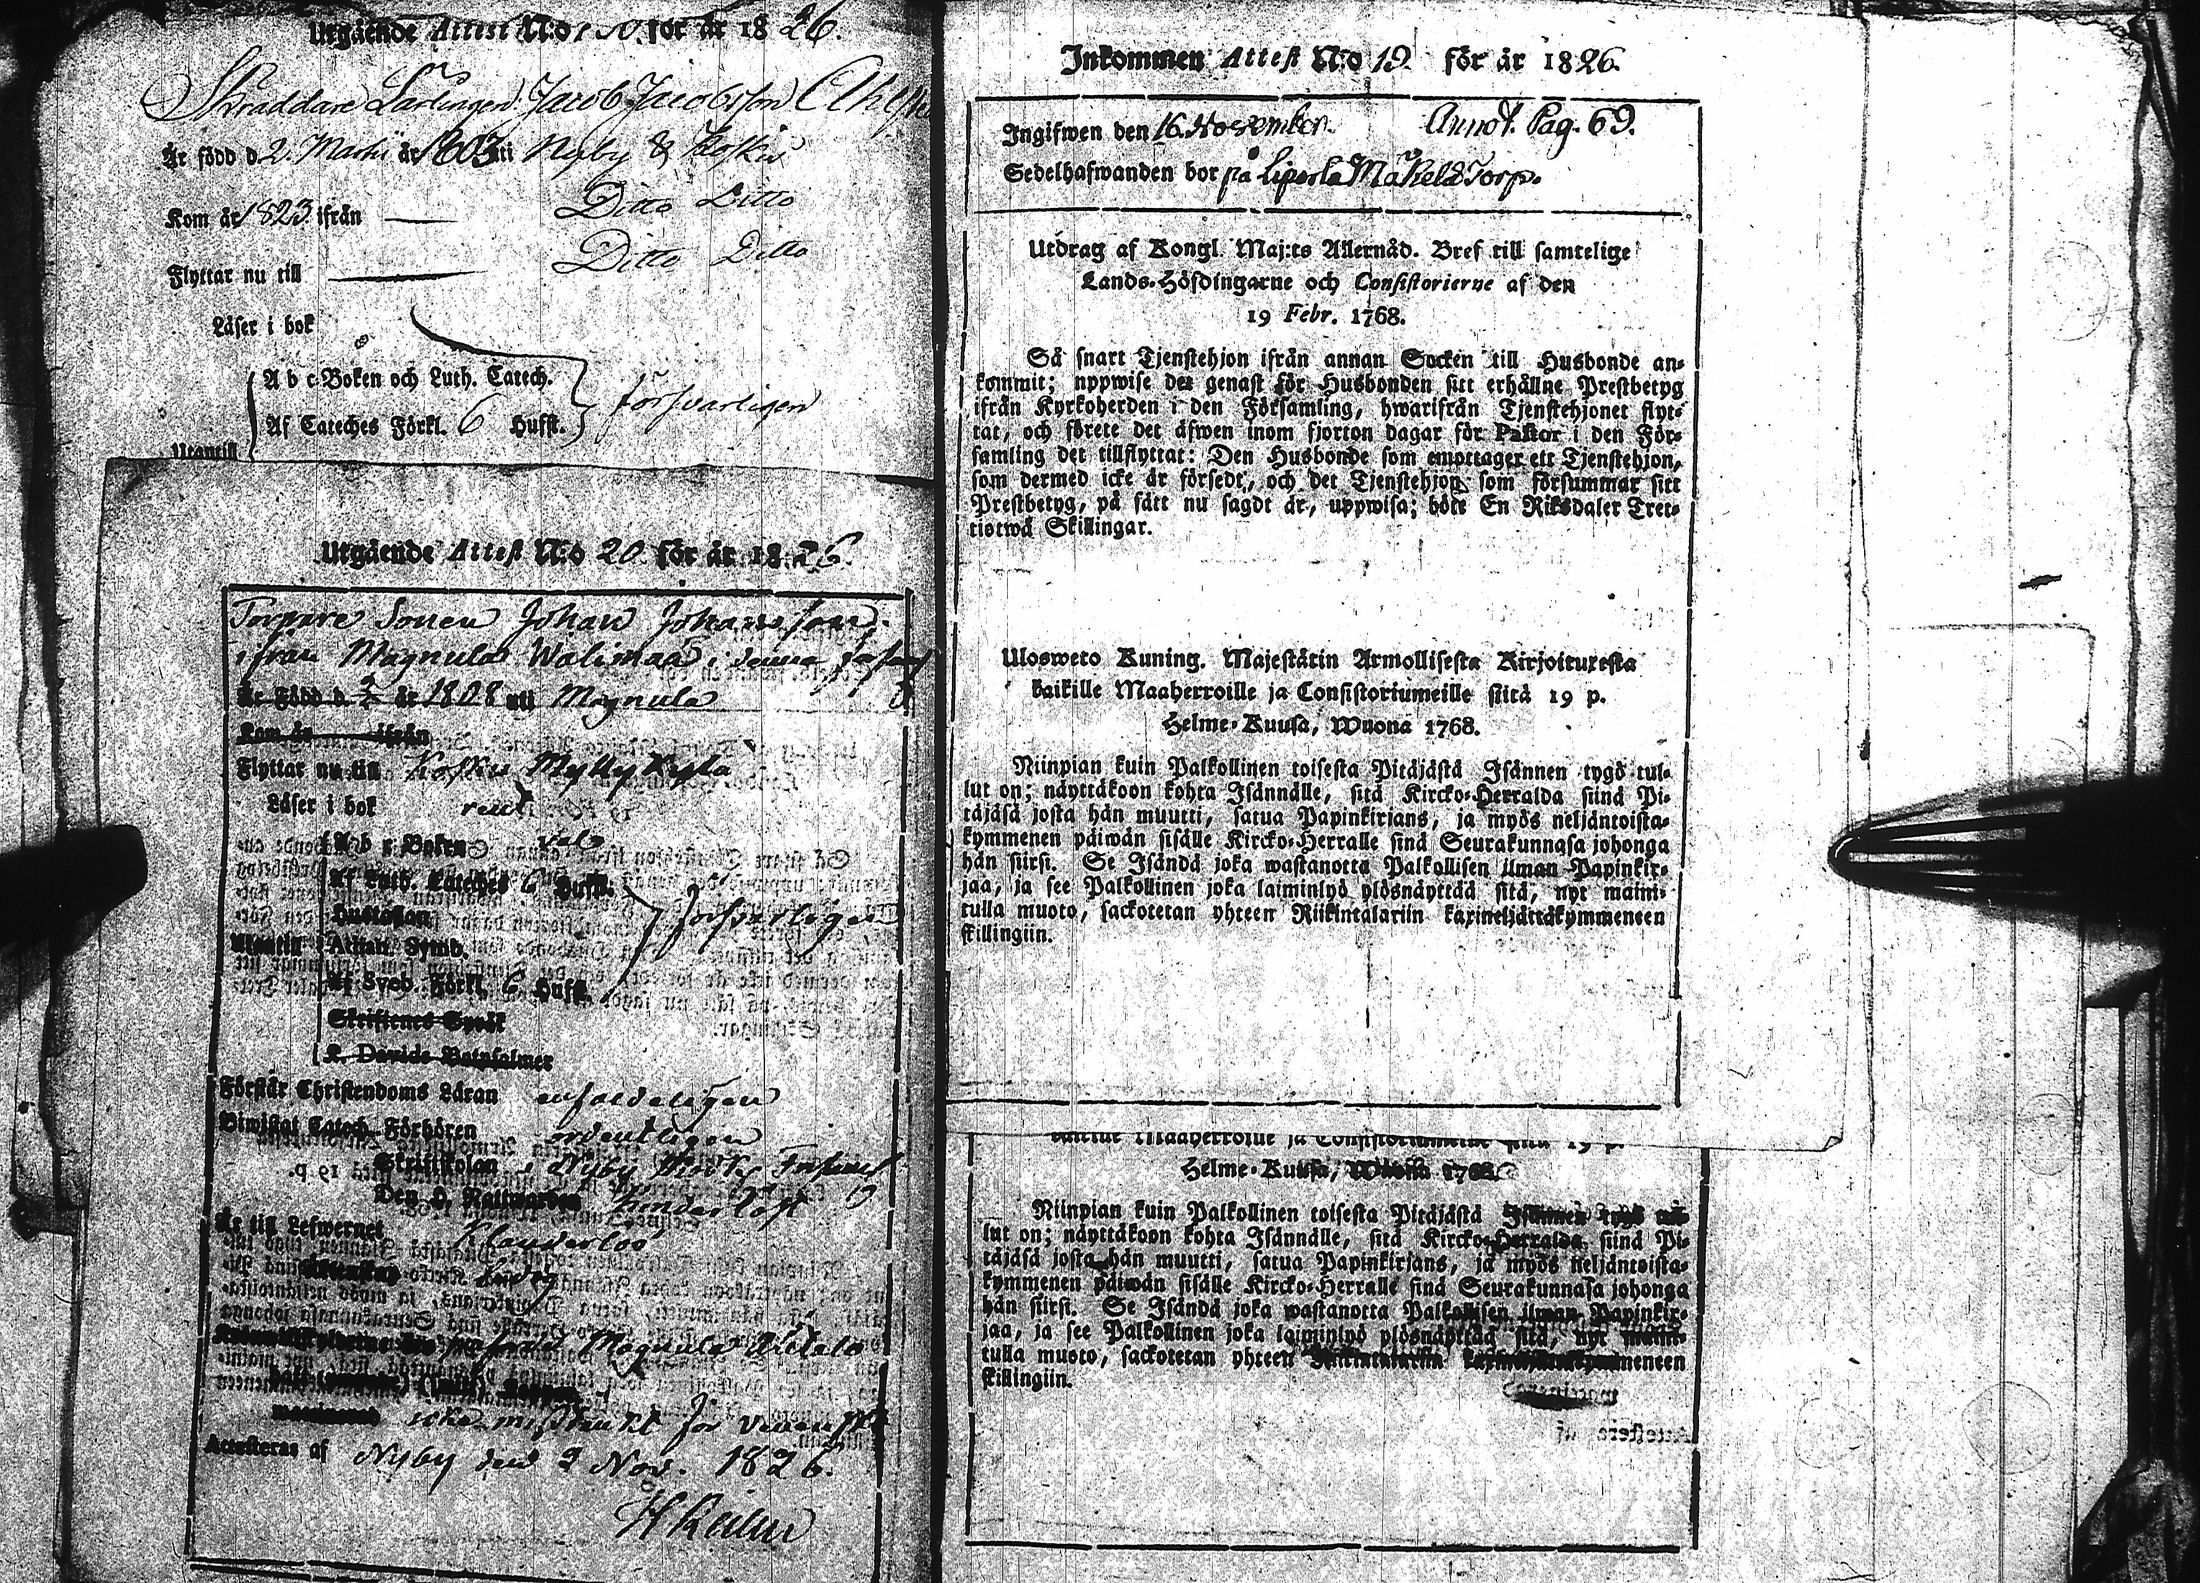 Utgående Attest N:o för år 1826.
Skräddare Lärlingen Jacob Jacobsson
Är född d. 2 Martii år 1803 uti Nyby & Koskis
Kom år 1823 ifrån — Ditto Ditto
Flyttar nu till — Ditto Ditto
Läser i bok
A b c-Boken och Luth. Catech.
Af Cateches Förkl. 6 Hufst. försvarligen
Utantill
Utgående Attest N:o 20 för år 1826.
Torpare Sonen Johan Johansson
ifrån Magnula Wälimaa i denna
Är Född d. år 1808 uti Magnula
Kom år ifrån
Flyttar nu till Koskis Myllykylä
Läser i bok rent
A b c-Boken väl
Af Luth. Cateches 6 Hufst.
Hustaflan försvarligen
Utantill Athan. Symb.
Af Sveb. Förkl. 6 Hufst.
Skriftenes Språk
K. Davids Botpsalmer
Förstår Christendoms Läran enfaldeligen
Biwistat Catech. Förhören ordentligen
Skriftskolan i Nyby
Den H. Nattwarden hinderlöst
Är till Lefwernet klanderlös
Äktenskap ledig
Magnula
icke misstänkt för
Attesteras af Nyby den 3 Nov. 1826.
Inkommen Attest N:o 19. för år 1826.
Ingifwen den 16 November. Annot. Pag. 69.
Sedelhafwanden bor på Liperla Mäkelä Torp.
Utdrag af Kongl. Maj:ts Allernåd. Bref till samtelige
Lands-Höfdingarne och Consistorierne af den
19 Febr. 1768.
Så snart Tjenstehjon ifrån annan Socken till Husbonde an-
kommit; uppwise det genast för Husbonden sitt erhållne Prestbetyg
ifrån Kyrkoherden i den Församling, hwarifrån Tjenstehjonet flyt-
tat, och förete det äfwen inom fjorton dagar för Pastor i den För-
samling det tillflyttat: Den Husbonde som emottager ett Tjenstehjon,
som dermed icke är försedt, och det Tjenstehjon som försummar sitt
Prestbetyg, på sätt nu sagdt är, uppwisa; böte En Riksdaler Tret-
tiotwå Skillingar.
Ulosweto Kuning. Majestätin Armollisesta Kirjoituxesta
kaikille Maaherroille ja Consistoriumeille siitä 19 p.
Helme-Kuusa, Wuona 1768.
Niinpian kuin Palkollinen toisesta Pitäjästä Isännen tygö tul-
lut on; näyttäkoon kohta Isännälle, sitä Kircko-Herralda siinä Pi-
täjäsä josta hän muutti, satua Papinkirjans, ja myös neljäntoista-
kymmenen päiwän sisälle Kircko-Herralle sinä Seurakunnasa johonga
hän siirsi. Se Isändä joka wastanotta Palkollisen ilman Papinkir-
jaa, ja see Palkollinen joka laiminlyö ylösnäyttää sitä, nyt maini-
tulla muoto, sackotetan yhteen Riikintalariin kaxineljättäkymmeneen
skillingiin.
Helme-Kuusa, Wuona 1768.
Niinpian kuin Palkollinen toisesta Pitäjästä
lut on; näyttäkoon kohta Isännälle, sitä Kircko-Herralda siinä Pi-
täjäsä josta hän muutti, satua Papinkirjans, ja myös neljäntoista-
kymmenen päiwän sisälle Kircko-Herralle sinä Seurakunnasa johonga
hän siirsi. Se Isändä joka wastanotta Palkollisen ilman Papinkir-
jaa, ja see Palkollinen joka laiminlyö ylösnäyttää sitä, nyt
tulla muoto, sackotetan yhteen
skillingiin.